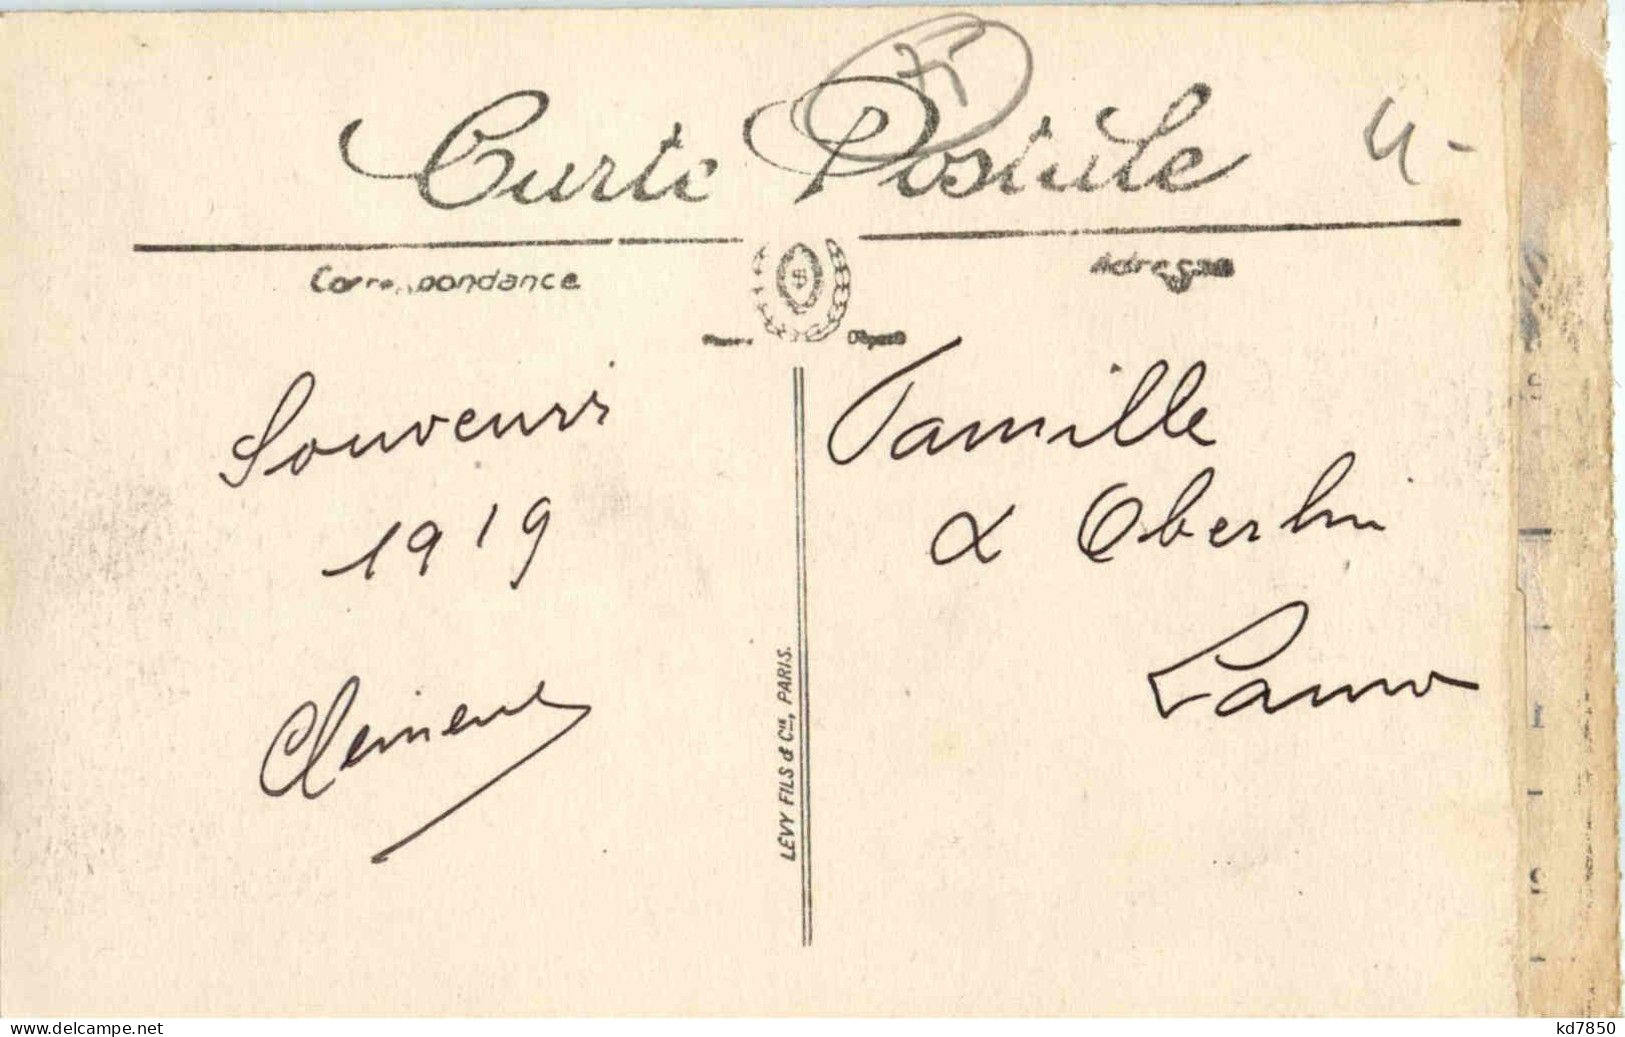 Carte Postale
4-
Correspondance
Adresse
Souvenir
1919
Clemence
Famille
& Oberlin
LEVY FILS & Cie, PARIS.
www.delcampe.net
kd7850